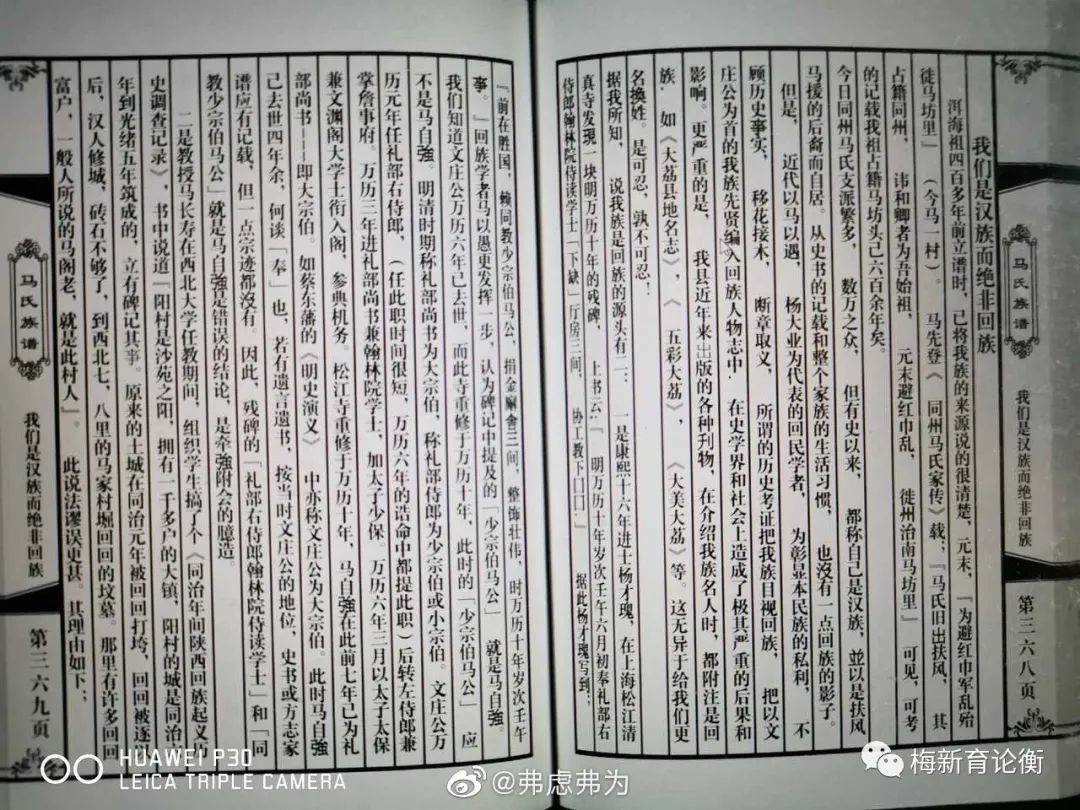 我们是汉族而绝非回族
洱海祖四百多年前立谱时，已将我族的来源说的很清楚，元末，「为避红巾军乱殆
徙马坊里」（今马一村）。马先登《同州马氏家传》载，「马氏旧出扶风，其
占籍同州，讳和卿者为吾始祖，元末避红巾乱，徙州治南马坊里」可见，可考
的记载我祖占籍马坊头已六百余年矣。
今日同州马氏支派繁多，数万之众，但有史以来，都称自己是汉族，並以是扶风
马援的后裔而自居。从史书的记载和整个家族的生活习惯，也沒有一点回族的影子。
但是，近代以马以遇，杨大业为代表的回民学者，为彰显本民族的私利，不
顾历史事实，移花接木，断章取义，所谓的历史考证把我族目视回族，把以文
庄公为首的我族先贤编入回族人物志中，在史学界和社会上造成了极其严重的后果和
影响。更严重的是，我县近年来出版的各种刊物，在介绍我族名人时，都附注是回
族，如《大荔县地名志》，《五彩大荔》，《大美大荔》等。这无异于给我们更
名换姓。是可忍，孰不可忍！
据我所知，说我族是回族的源头有二：一是康熙十六年进士杨才瑰，在上海松江清
真寺发现一块明万历十年的残碑，上书云：「明万历十年岁次壬午六月初奉礼部右
侍郎翰林院侍读学士「下缺」厅房三间，协工教下囗囗。」据此杨才瑰写到，
「前在胜国，赖同教少宗伯马公，捐金廨舍三间，整饰壮伟，时万历十年岁次壬午
事。」回族学者马以愚更发挥一步，认为碑记中提及的「少宗伯马公」就是马自強。
我们知道文庄公万历六年已去世，而此寺重修于万历十年，此时的「少宗伯马公」应
不是马自強。明清时期称礼部尚书为大宗伯，称礼部侍郎为少宗伯或小宗伯。文庄公万
历元年任礼部右侍郎，（任此职时间很短，万历六年的浩命中都提此职）后转左侍郎兼
掌詹事府。万历三年进礼部尚书兼翰林院学士，加太子少保。万历六年三月以太子太保
兼文渊阁大学士衔入阁，参典机务。松江寺重修于万历十年，马自強在此前七年已为礼
部尚书——即大宗伯。如蔡东藩的《明史演义》中亦称文庄公为大宗伯。此时马自強
己去世四年余，何谈「奉」也，若有遗言遗书，按当时文庄公的地位，史书或方志家
谱应有记载，但一点宗迹都沒有。因此，残碑的「礼部右侍郎翰林院侍读学士」和「同
教少宗伯马公」就是马自強是错误的结论，是牵強附会的臆造。
二是教授马长寿在西北大学任教期间，组织学生搞了个《同治年间陕西回族起义历
史调查记录》，书中说道「阳村是沙苑之阳，拥有一千多户的大镇，阳村的城是同治三
年到光绪五年筑成的，立有碑记其事。原来的土城在同治元年被回回打垮，回回被逐以
后，汉人修城，砖石不够了，到西北七，八里的马家村堀回回的坟墓。那里有许多回回
富户，一般人所说的马阁老，就是此村人」。此说法谬误更甚。其理由如下：
马氏族谱
我们是汉族而绝非回族
第三六八页
马氏族谱
我们是汉族而绝非回族
第三六九页
HUAWEI P30
LEICA TRIPLE CAMERA
@弗虑弗为
梅新育论衡